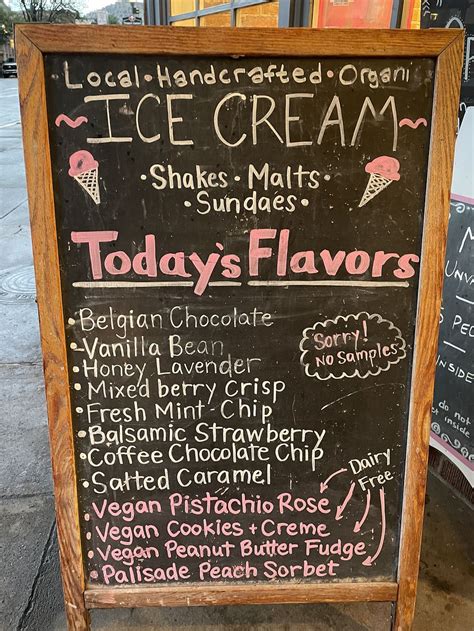 Local • Handcrafted • Organi
ICE CREAM
• Shakes • Malts •
• Sundaes •
Today's Flavors
• Belgian Chocolate
• Vanilla Bean
• Honey Lavender
• Mixed berry Crisp
• Fresh Mint-Chip
• Balsamic Strawberry
• Coffee Chocolate Chip
• Salted Caramel
• Vegan Pistachio Rose
• Vegan Cookies + Creme
• Vegan Peanut Butter Fudge
• Palisade Peach Sorbet
Sorry!
No Samples
Dairy
Free
INSIDE
do not